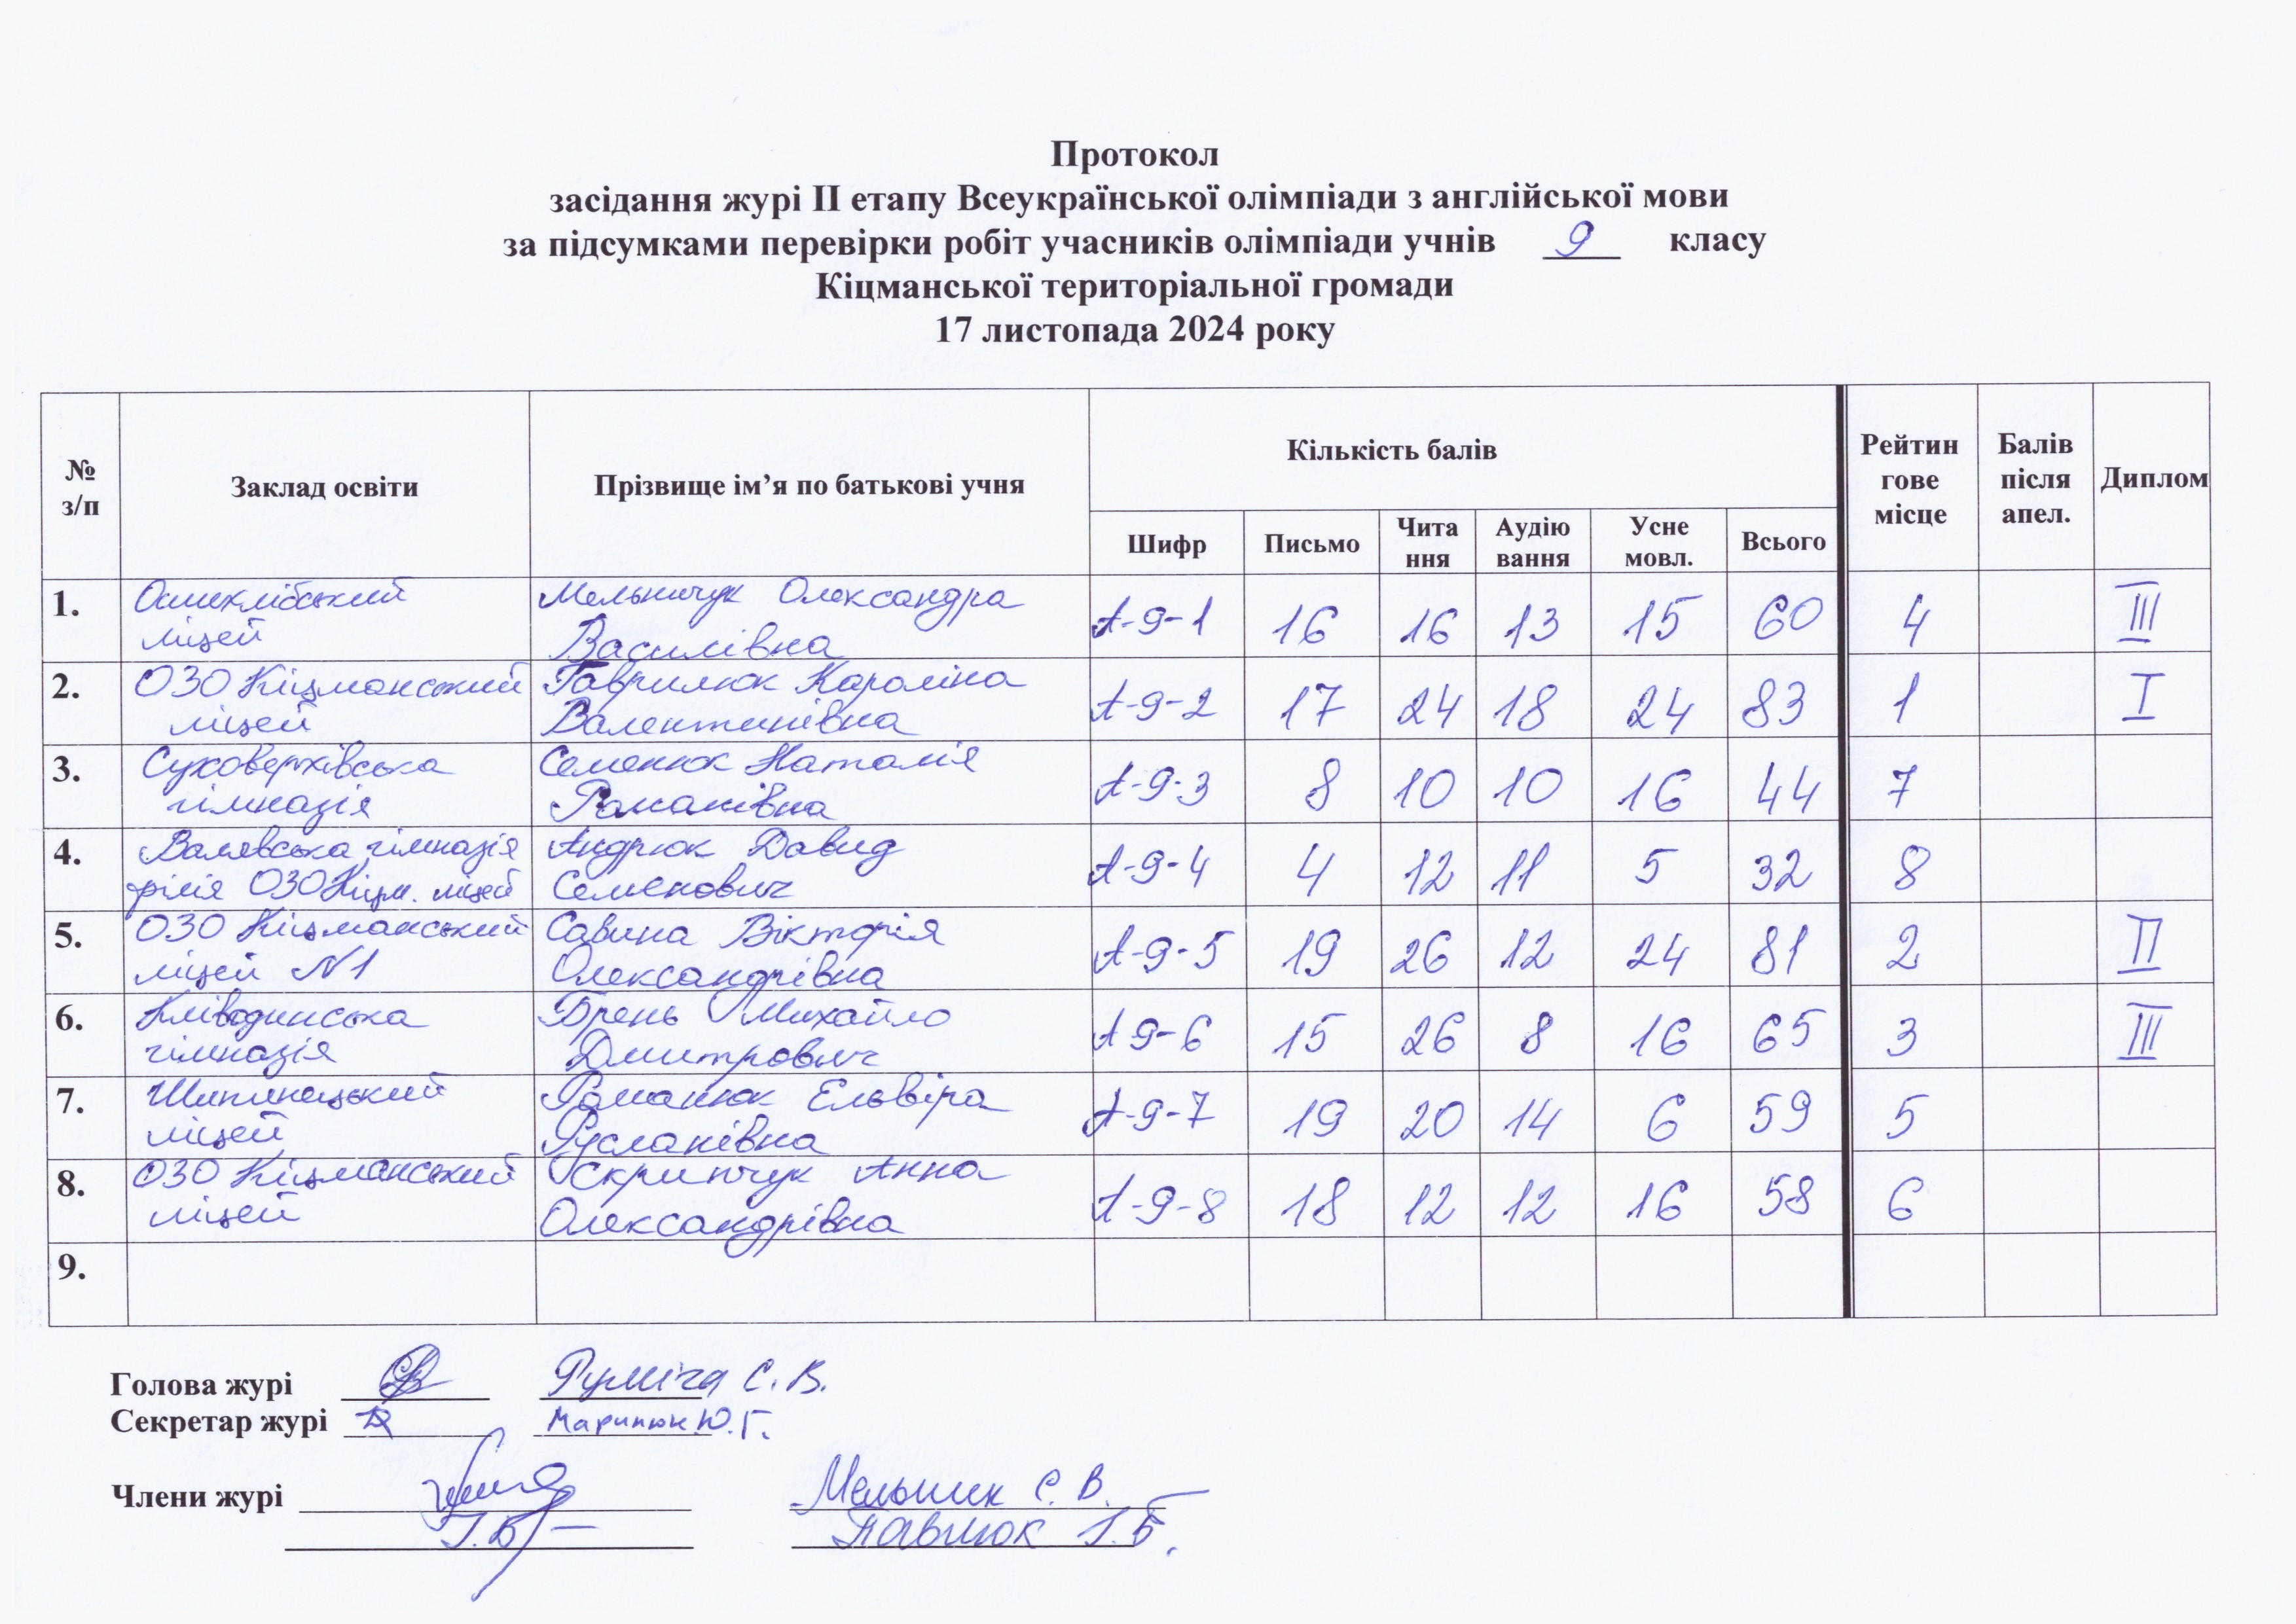 Протокол
засідання журі ІІ етапу Всеукраїнської олімпіади з англійської мови
за підсумками перевірки робіт учасників олімпіади учнів 9 класу
Кіцманської територіальної громади
17 листопада 2024 року
№ з/п Заклад освіти Прізвище ім’я по батькові учня Кількість балів Рейтин гове місце Балів після апел. Диплом
Шифр Письмо Чита ння Аудію вання Усне мовл. Всього
1. Ошихлібський Мельничук Олександра
ліцей Василівна А-9-1 16 16 13 15 60 4 III
2. ОЗО Кіцманський Гаврилюк Кароліна
ліцей Валентинівна А-9-2 17 24 18 24 83 1 I
3. Суховерхівська Семенюк Наталія
гімназія Романівна А-9-3 8 10 10 16 44 7
4. Валявська гімназія Андрюк Давид
філія ОЗО Кіцм. ліцей Семенович А-9-4 4 12 11 5 32 8
5. ОЗО Кіцманський Савина Вікторія
ліцей N1 Олександрівна А-9-5 19 26 12 24 81 2 II
6. Кліводинська Брень Михайло
гімназія Дмитрович А 9-6 15 26 8 16 65 3 III
7. Шипинецький Романюк Ельвіра
ліцей Русланівна А-9-7 19 20 14 6 59 5
8. ОЗО Кіцманський Скрипчук Анна
ліцей Олександрівна А-9-8 18 12 12 16 58 6
9.
Голова журі С. В.
Секретар журі Ю.Г.
Члени журі Мельник С. В.
Павлюк Г.Б.